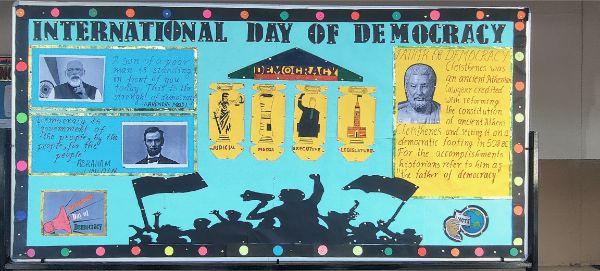 INTERNATIONAL DAY OF DEMOCRACY
A son of a poor
man is standing
in front of you
today. This is the
strength of democracy
NARENDRA MODI
Democracy is
government of
the people, by the
people, for the
people
ABRAHAM
LINCOLN
Day of
Democracy
DEMOCRACY
JUDICIAL
MEDIA
EXECUTIVE
LEGISLATURE
FATHER OF DEMOCRACY
Cleisthenes was
an ancient Athenian
lawgiver credited
with reforming
the constitution
of ancient Athens
and setting it on a
democratic footing in 508 BC
Cleisthenes
For the accomplishments
historians refer to him as
"the father of democracy"